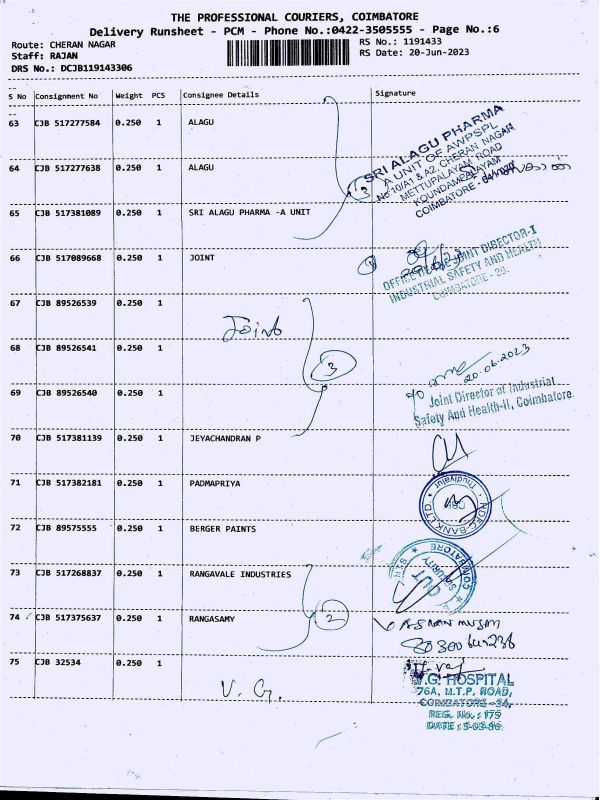 THE PROFESSIONAL COURIERS, COIMBATORE
Delivery Runsheet - PCM - Phone No.:0422-3505555 - Page No.:6
Route: CHERAN NAGAR
RS No.: 1191433
Staff: RAJAN
RS Date: 20-Jun-2023
DRS No.: DCJB119143306
S No Consignment No Weight PCS Consignee Details Signature
63 CJB 517277584 0.250 1 ALAGU
SRI ALAGU PHARMA
A UNIT OF AWPSPL
No 10/A1 & A2, CHERAN NAGAR
METTUPALAYAM ROAD
KOUNDAMPALAYAM
COIMBATORE -
64 CJB 517277638 0.250 1 ALAGU
3
65 CJB 517381089 0.250 1 SRI ALAGU PHARMA -A UNIT
66 CJB 517089668 0.250 1 JOINT
1
OFFICE JOINT DIRECTOR-I
INDUSTRIAL SAFETY AND HEALTH
COIMBATORE - 29.
67 CJB 89526539 0.250 1
Joint
68 CJB 89526541 0.250 1
3
20.06.2023
69 CJB 89526540 0.250 1
Joint Director of Industrial
Safety And Health-II, Coimbatore.
70 CJB 517381139 0.250 1 JEYACHANDRAN P
71 CJB 517382181 0.250 1 PADMAPRIYA
HDFC BANK LTD
Thudiyalur
72 CJB 89575555 0.250 1 BERGER PAINTS
COIMBATORE
OUT
SECURITY
73 CJB 517268837 0.250 1 RANGAVALE INDUSTRIES
74 CJB 517375637 0.250 1 RANGASAMY
2
75 CJB 32534 0.250 1
V. G.
V.G. HOSPITAL
76A, M.T.P. ROAD,
COIMBATORE -34,
REG. No. : 175
DATE : 5-03-86